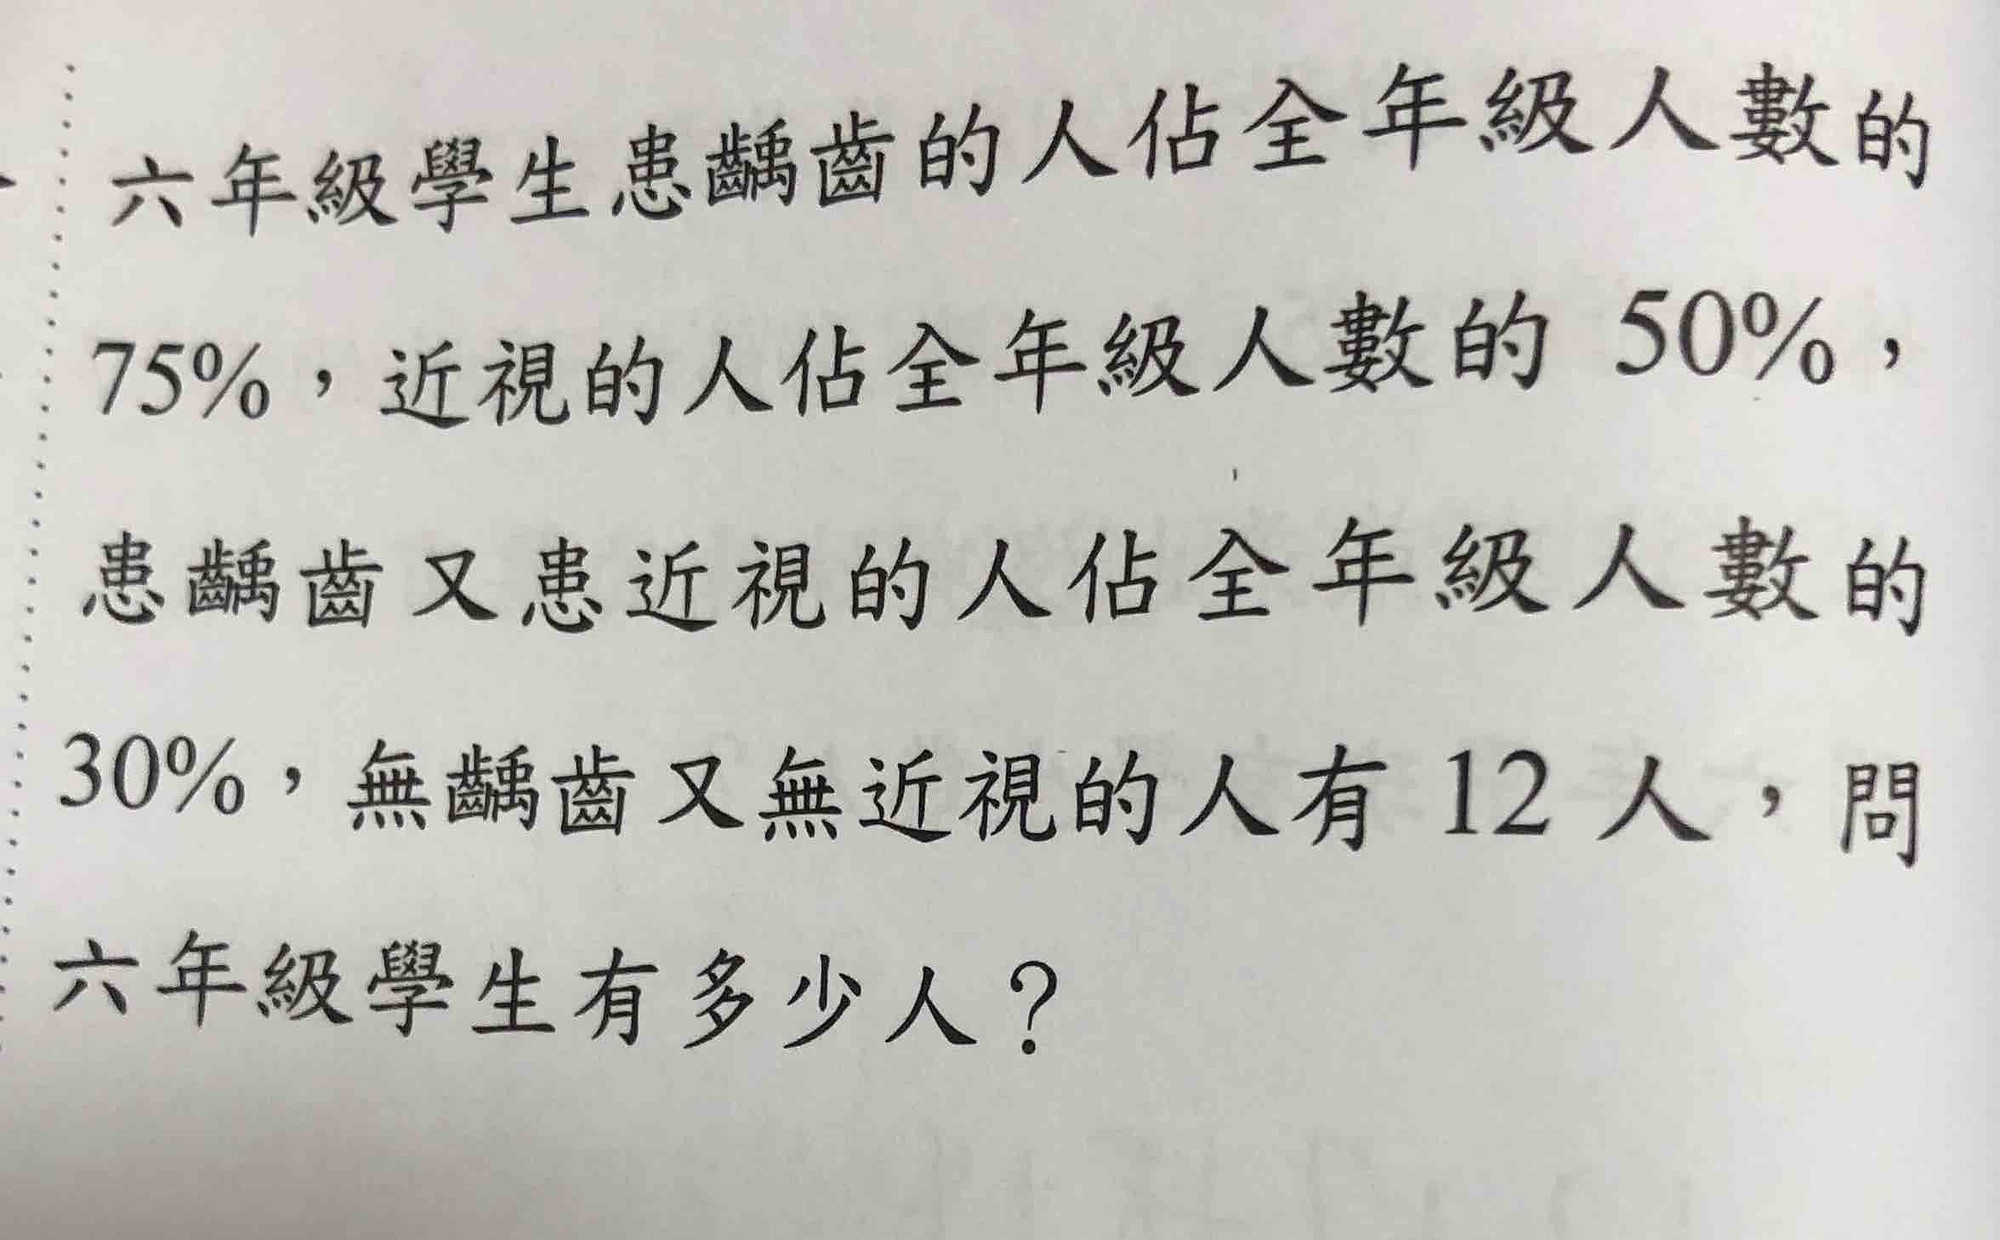 六年級學生患齲齒的人佔全年級人數的
75%，近視的人佔全年級人數的 50%，
患齲齒又患近視的人佔全年級人數的
30%，無齲齒又無近視的人有 12 人，問
六年級學生有多少人？